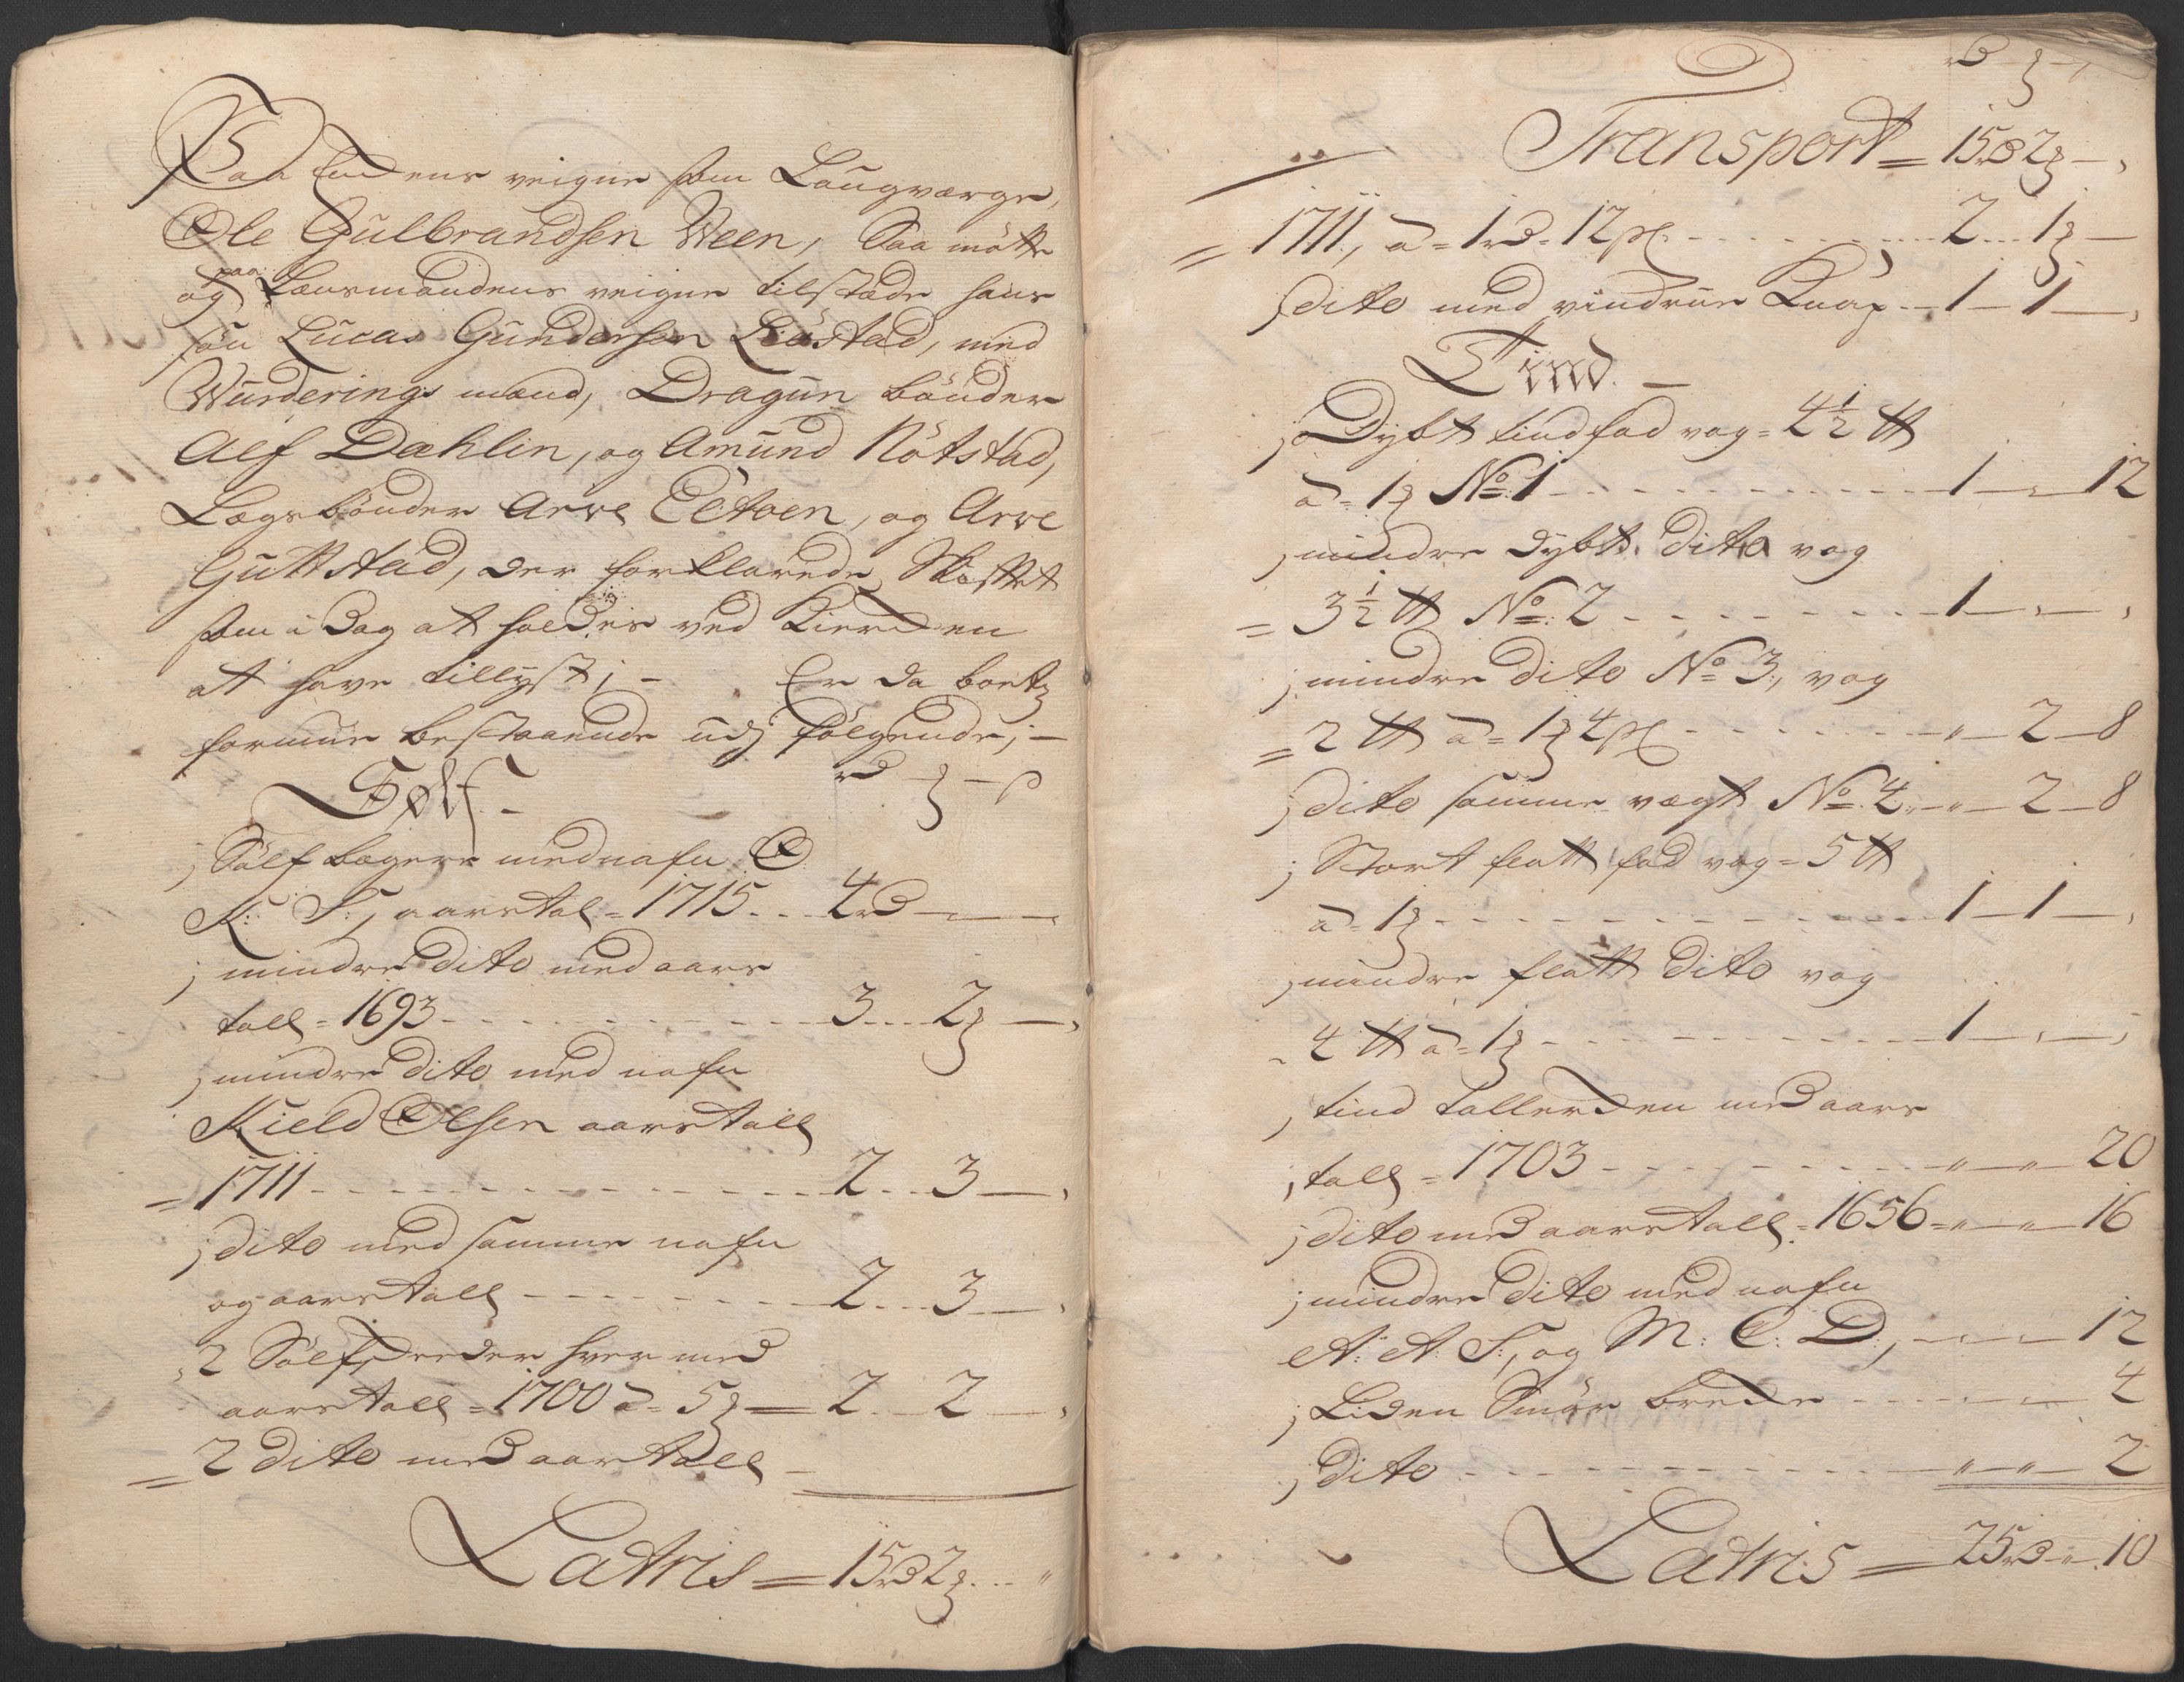 Paa Endens veigne som Laugværge,
Ole Gulbrandsen Ween, Saa mötte
og paa Lænsmandens veigne tilstæde hans
sön Lucas Gundersen Liöstad, med
Wurderings mænd, Dragun bönder
Alf Dæhlin, og Amund Nötstad,
Lægsbönder Arve Eetoen, og Arve
Guttstad, der forklarede Skiftet
som i Dag at holdes ved Kierken
at have tillyst; - Er da boets
formue bestaaende udj fölgende; -
Sølf. - rd ȝ - s
j Sölf bægere med nafn O
K: S:, aarstal = 1715 .. 4 rd - -
j mindre dito med aars
tall = 1693 - - - 3 .. 2ȝ -
j mindre dito med nafn
Kield Olsen aarstall
= 1711 - - - 2 .. 3 -
j dito med samme nafn
og aarstall - - - 2 .. 3 -
2 Sölfskeeder hver med
aarstall = 1700 a = 5ȝ = 2 .. 2 -
= 2 dito med aarstall -
Latris = 15 rd 2ȝ .. "
rd ȝ -
Transport = 15 rd 2ȝ -
= 1711, a = 1 rd = 12 s - - - 2 .. 1ȝ -
j dito med vindrue Knap - 1 - 1 -
Tind. -
j Dybt tindfad vog = 4½ ℔
a = 1ȝ No: 1 - - - 1 - " - 12
j mindre dybt dito vog
= 3½ ℔ No: 2 - - - 1 - " -
j mindre dito No 3, vog
= 2 ℔ a = 1ȝ 4 s - - - " - 2 - 8
j dito samme vægt No. 4 - " - 2 - 8
j Stort flatt fad vog = 5 ℔
a = 1ȝ - - - 1 - 1 -
j mindre flatt dito vog
4 ℔ a = 1ȝ - - - 1 - " -
j tind tallerken med aars
tall = 1703 - - - " - " - 20
j dito med aarstall = 1656 - " - " - 16
j mindre dito med nafn
A: A: S:, og M: C: D:, - " - 12
j Liden Smör brede - - - 4
j dito - - - " - " - 2
Latris = 25 rd - " - 10